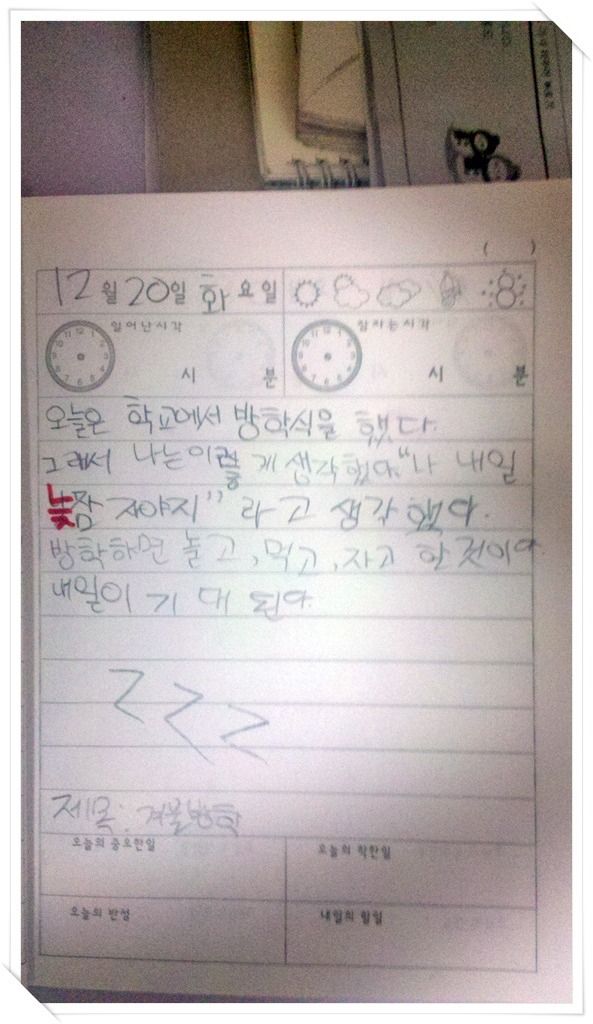 ( )
12월 20일 화요일
일어난시각 잠자는시각
시 분 시 분
오늘은 학교에서 방학식을 했다.
그래서 나는 이렇게 생각했다. "나 내일
낮잠 자야지" 라고 생각 했다.
방학하면 놀고, 먹고, 자고 할 것이다
내일이 기 대 된다.
Z Z Z
제목: 겨울방학
오늘의 중요한일 오늘의 착한일
오늘의 반성 내일의 할일